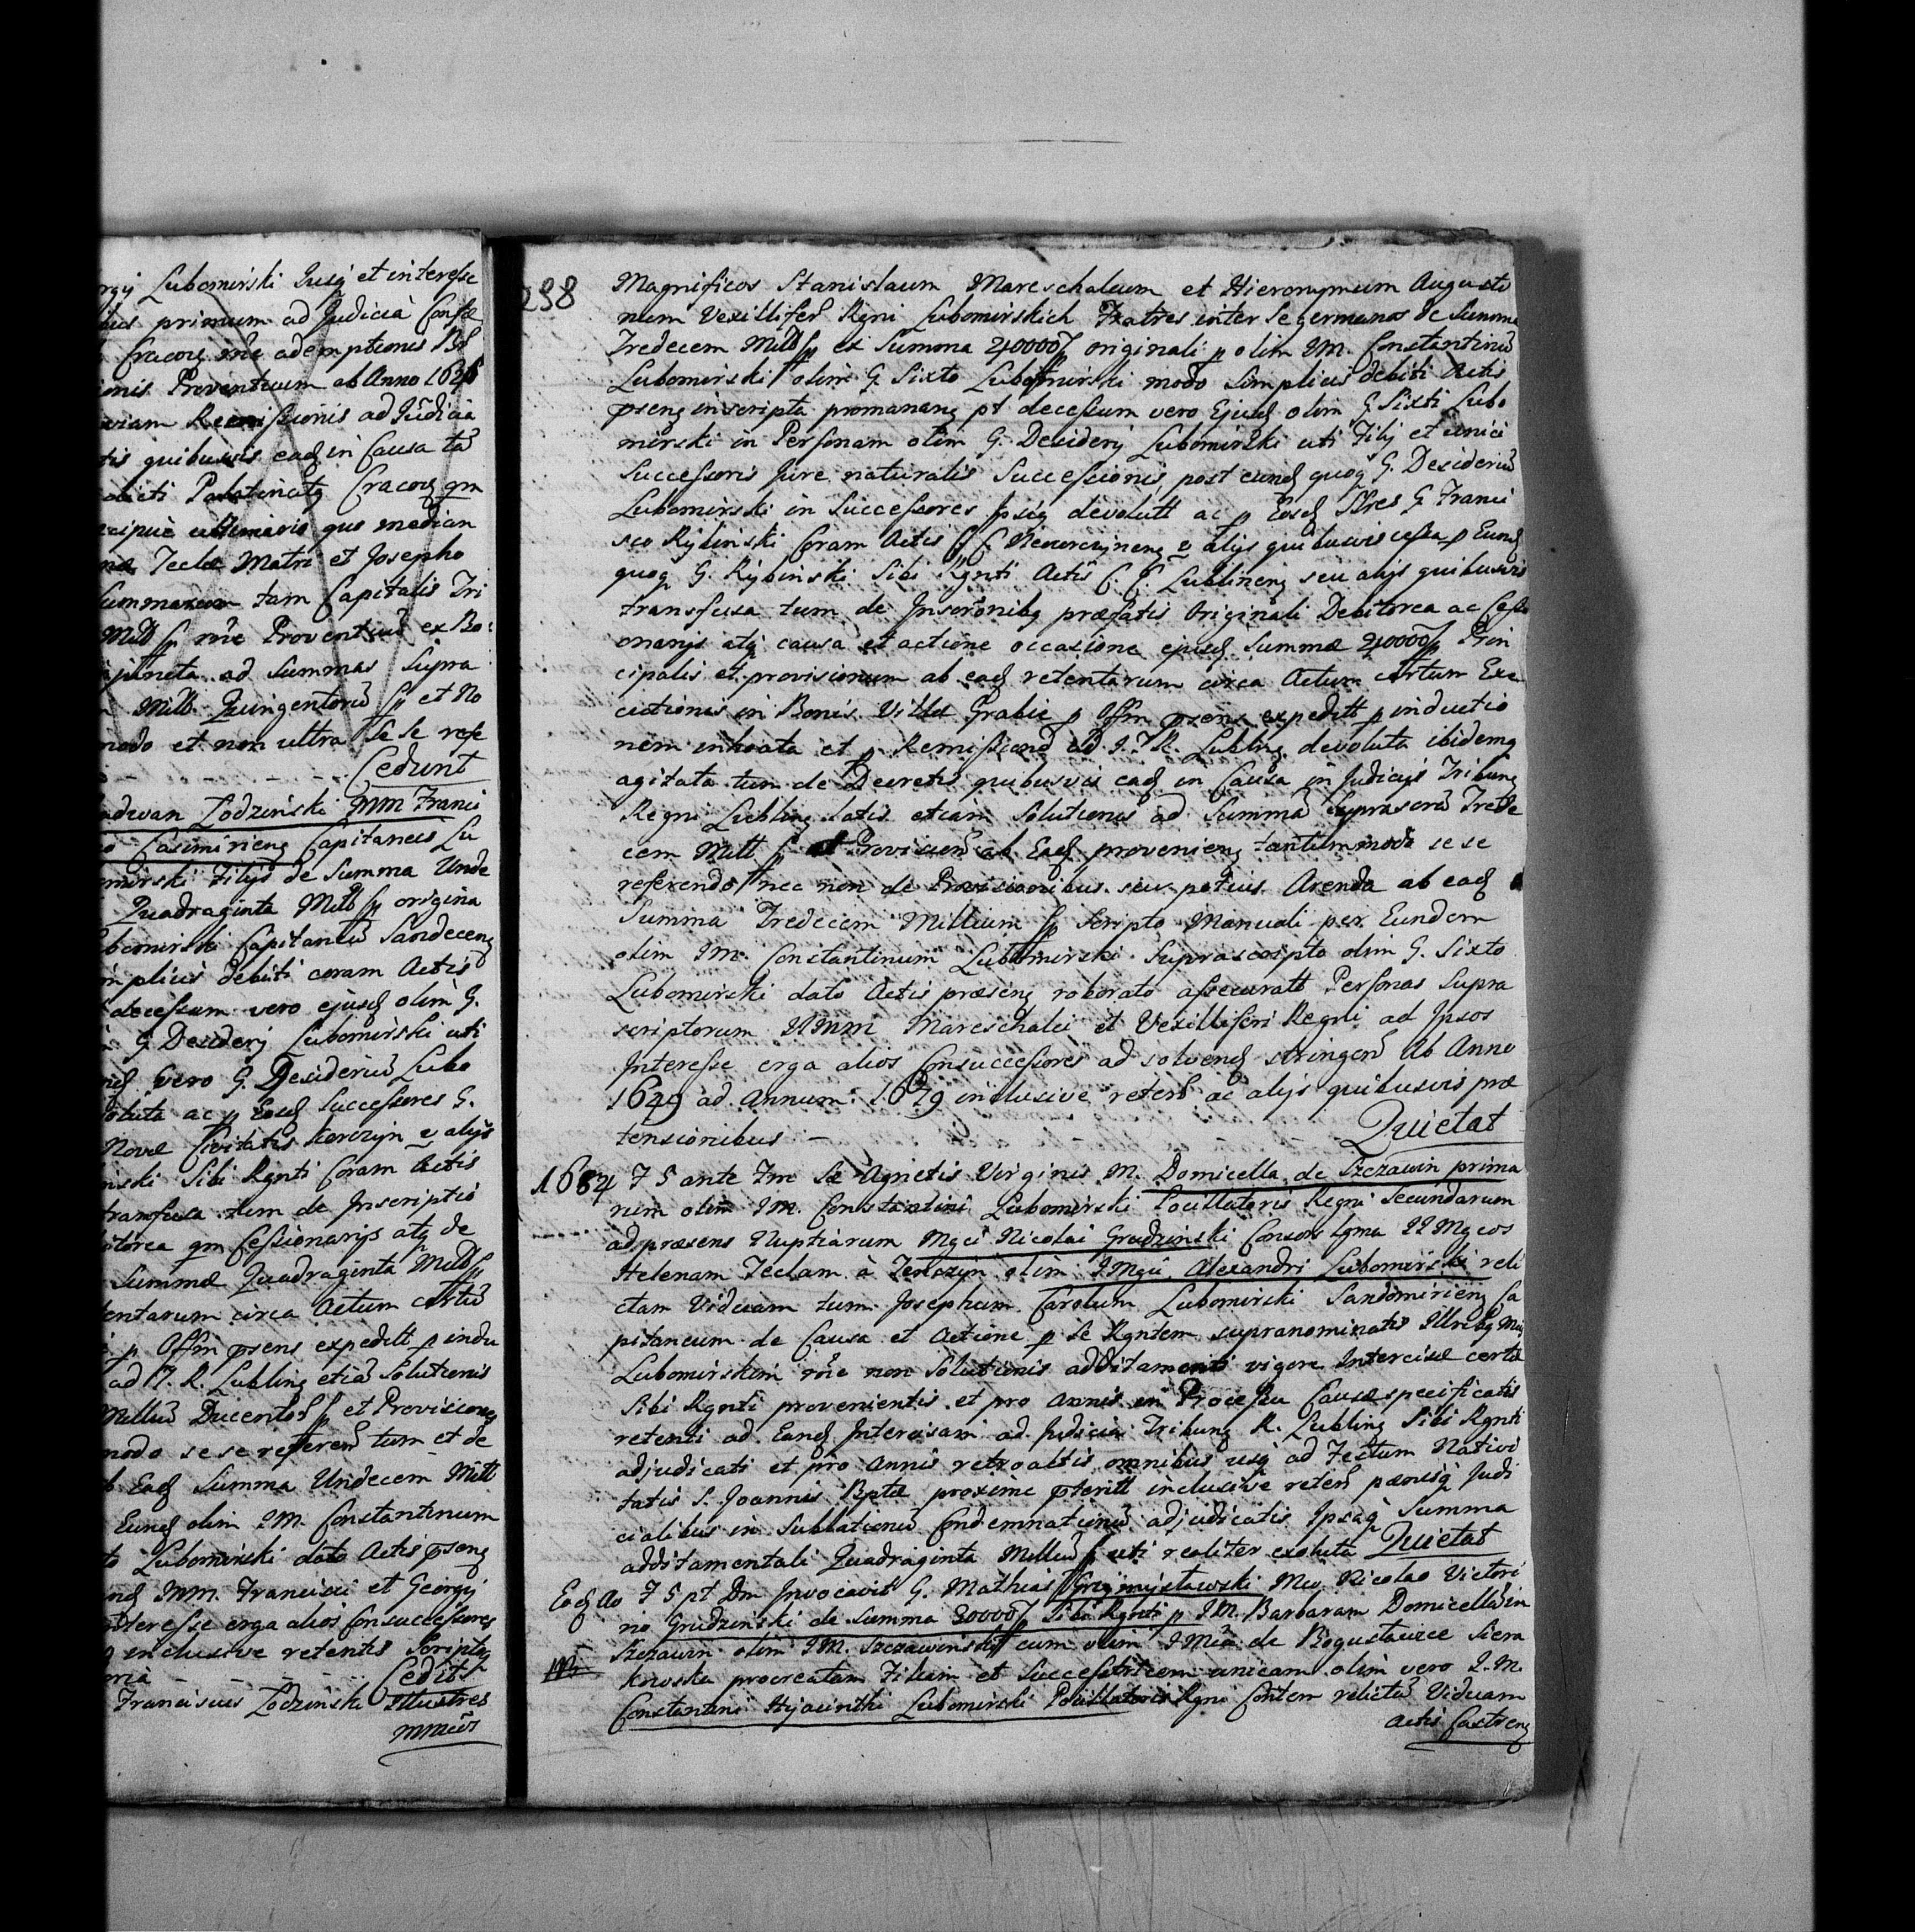 rgij Lubomirski Jusq et interesse
primum ad Judicia
Cracov rne ademptionis
Proventuum ab Anno 162
Remissionis ad Judicia
quibusvis eaq in Causa
Palatinatq Cracov qm
ultimario quo median
Tecla Matri et Josepho
Summarum tam Capitalis Tri
Mill rne Proventus ex Bo
juncta ad Summas Supra
Mill. Quingentorū et No
modo et non ultra Se se refe
Cedunt
adwan Łodzinski MM Franci
Casimirienq Capitaneis Lu
mirski Filijs de Summa Unde
Quadraginta Mill origina
bomirski Capitaneū Sandecenq
mplicis debiti coram Actis
decessum vero ejusq olim G.
G Desiderij Lubomirski uti
vero G. Desideriū Lubo
voluta ac p Eosq Successores G.
Novæ Civitatis Korczyn v alijs
inski Sibi Rgnti Coram Actis
transfusa tum de Inscriptio
itorea qm Cessionarijs atq de
Summæ Quadraginta Mill
tentarum circa Actum certū
p Offm psens expeditt p indu
ad T. R. Lublinq etiā Solutionis
Milliū Ducentor et Provisionq
modo se se referenđ tum et de
b Eaq Summa Undecem Mill
Eunq olim IM. Constantinum
to Lubomirski dato Actis psenq
MM. Francisci et Georgij
Interesse erga alios Consuccessores
inclusive retentis
Cedit
Franciscus Łodzinski Illustres
mmcos
298
Magnificos Stanislaum Mareschalcum et Hieronymum Augusti
num Vexilliferŏ Rgni Lubomirskich Fratres inter Se germanos de Summa
Tredecem Mill ex Summa 40000 originali p olim IM. Constantinū
Lubomirski olim G. Sixto Lubomirski modo Simplicis debiti Actis
psenq inscripta promananq pt decessum vero Ejusq olim G. Sixti Lubo
mirski in Personam olim G. Desiderij Lubomirski uti Filij et unici
Successoris Jure naturalis Successionis, post eunq quoq G. Desideriū
Lubomirski in Successores Ipsiq devolutt ac p Eosq Sres G. Franci
sco Rybinski Coram Actis C. C. Neocorcynenq v alijs quibusvis cessa p Eunq
quoq G. Rybinski Sibi Rgnti Actis C. C. Lublinenq seu alijs quibusvis
transfusa tum de Inscronibq præfatis Originali Debitorea ac Cessi
onarijs atq causa et actione occasione ejusq Summæ 40000 Prin
cipalis et provisionum ab eaq retentarum circa Actum certum Exe
cutionis in Bonis Villæ Grabie p Offm psens expeditt p inductio
nem inhoata et p Remissionĕ ad J. T. R. Lublinq devoluta ibidemq
agitata tum de Decretis quibusvis eaq in Causa in Judicijs Tribunq
Regni Lublinq latis etiam Solutionis ad Summā Suprascrŏ Trede
cem Mill et Provisionŏ ab Eaq provenienq tantummodo se se
referendo nec non de Provisionibus seu potius Arenda ab eaq
Summa Tredecem Millium Scripto Manuali per Eundem
olim IM. Constantinum Lubomirski Suprascripto olim G. Sixto
Lubomirski dato Actis præsenq roborato assecuratt Personas Supra
scriptorum IIMM Mareschalci et Vexilliferi Regni ad Ipsos
Interesse erga alios Consuccessores ad solvenq stringenŏ Ab Anno
1649 ad Annum 1679 inclusive retenŏ ac alijs quibusvis præ
tensionibus — Quietat
1684 F 5 ante Fm Sæ Agnetis Virginis M. Domicella de Szczawin prima
rum olim IM. Constantini Lubomirski Pocillatoris Regni Secundarum
ad præsens Nuptiarum Mgci Nicolai Grudzinski Consors Lgma IIMgcos
Helenam Teclam à Tenczyn olim IMgci Alexandri Lubomirski reli
ctam Viduam tum Josephum Carolum Lubomirski Sandomirienq Ca
pitaneum de Causa et Actione p Se Rgntem supranominatis Illribq
Lubomirskim rne non Solutionis additamenti vigore Intercisæ certæ
Sibi Rgnti provenientis et pro annis in Processu Causæ specificatis
retenti ad Eanq Intercisam ad Judicia Tribunq R. Lublinq Sibi Rgnti
adjudicati et pro Annis retroactis omnibus usq ad Festum Nativi
tatis S. Joannis Bptæ proxime pteritt inclusive retenŏ pænisq Judi
cialibus in Sublationŏ Condemnationŏ adjudicatis Ipsaq Summa
additamentali Quadraginta Milliū uti realiter exoluta Quietat
Eaq Ao F 5 pt Dm Invocavit G. Mathias Grzymysławski Mco Nicolao Victori
no Grudzinski de Summa 30000 Sibi Rgnti p IM. Barbaram Domicellā in
Szczawin olim IM. Szczawinski cum olim IMca de Bogusławice Siera
kowska procreatam Filiam et Successtricem unicam olim vero I. M.
Constantini Hyacinthi Lubomirski Pocillatoris Rgni Contem relictā Viduam
Actis Castrenq